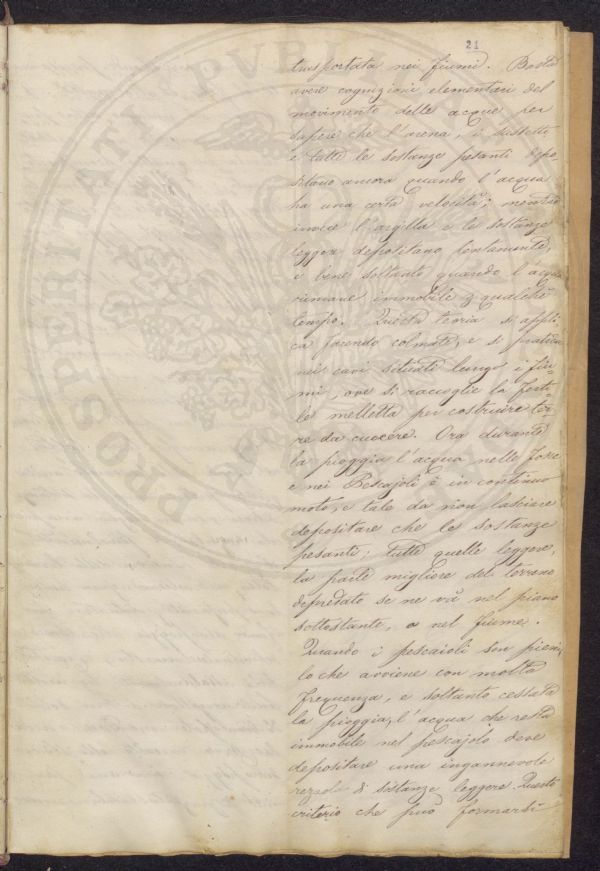 21
trasportata nei fiumi. Basta
avere cognizioni elementari del
movimento delle acque per
sapere che l'arena, i
e tutte le sostanze pesanti depo
sitano ancora quando l'acqua
ha una certa velocità; mentre
invece l'argilla e le sostanze
leggere depositano lentamente,
e bene soltanto quando l'acqua
rimane immobile p qualche
tempo. Questa teoria si appli
ca facendo colmate, e si pratica
nei cavi situati lungo i fiu=
mi, ove si raccoglie la ferti
le melletta per costruire ter=
re da cuocere. Ora durante
la pioggia l'acqua nelle fosse
e nei Pescajoli è in continuo
moto, e tale da non lasciare
depositare che le sostanze
pesanti; tutte quelle leggere,
la parte migliore del terreno
depredato se ne và nel piano
sottostante, o nel fiume.
Quando i pescaioli son pieni,
lo che avviene con molta
frequenza, e soltanto cessata
la pioggia, l'acqua che resta
immobile nel pescajolo deve
depositare una ingannevole
di sostanze leggere. Questo
criterio che può formarsi
PROSPERITATI PVBLICAE